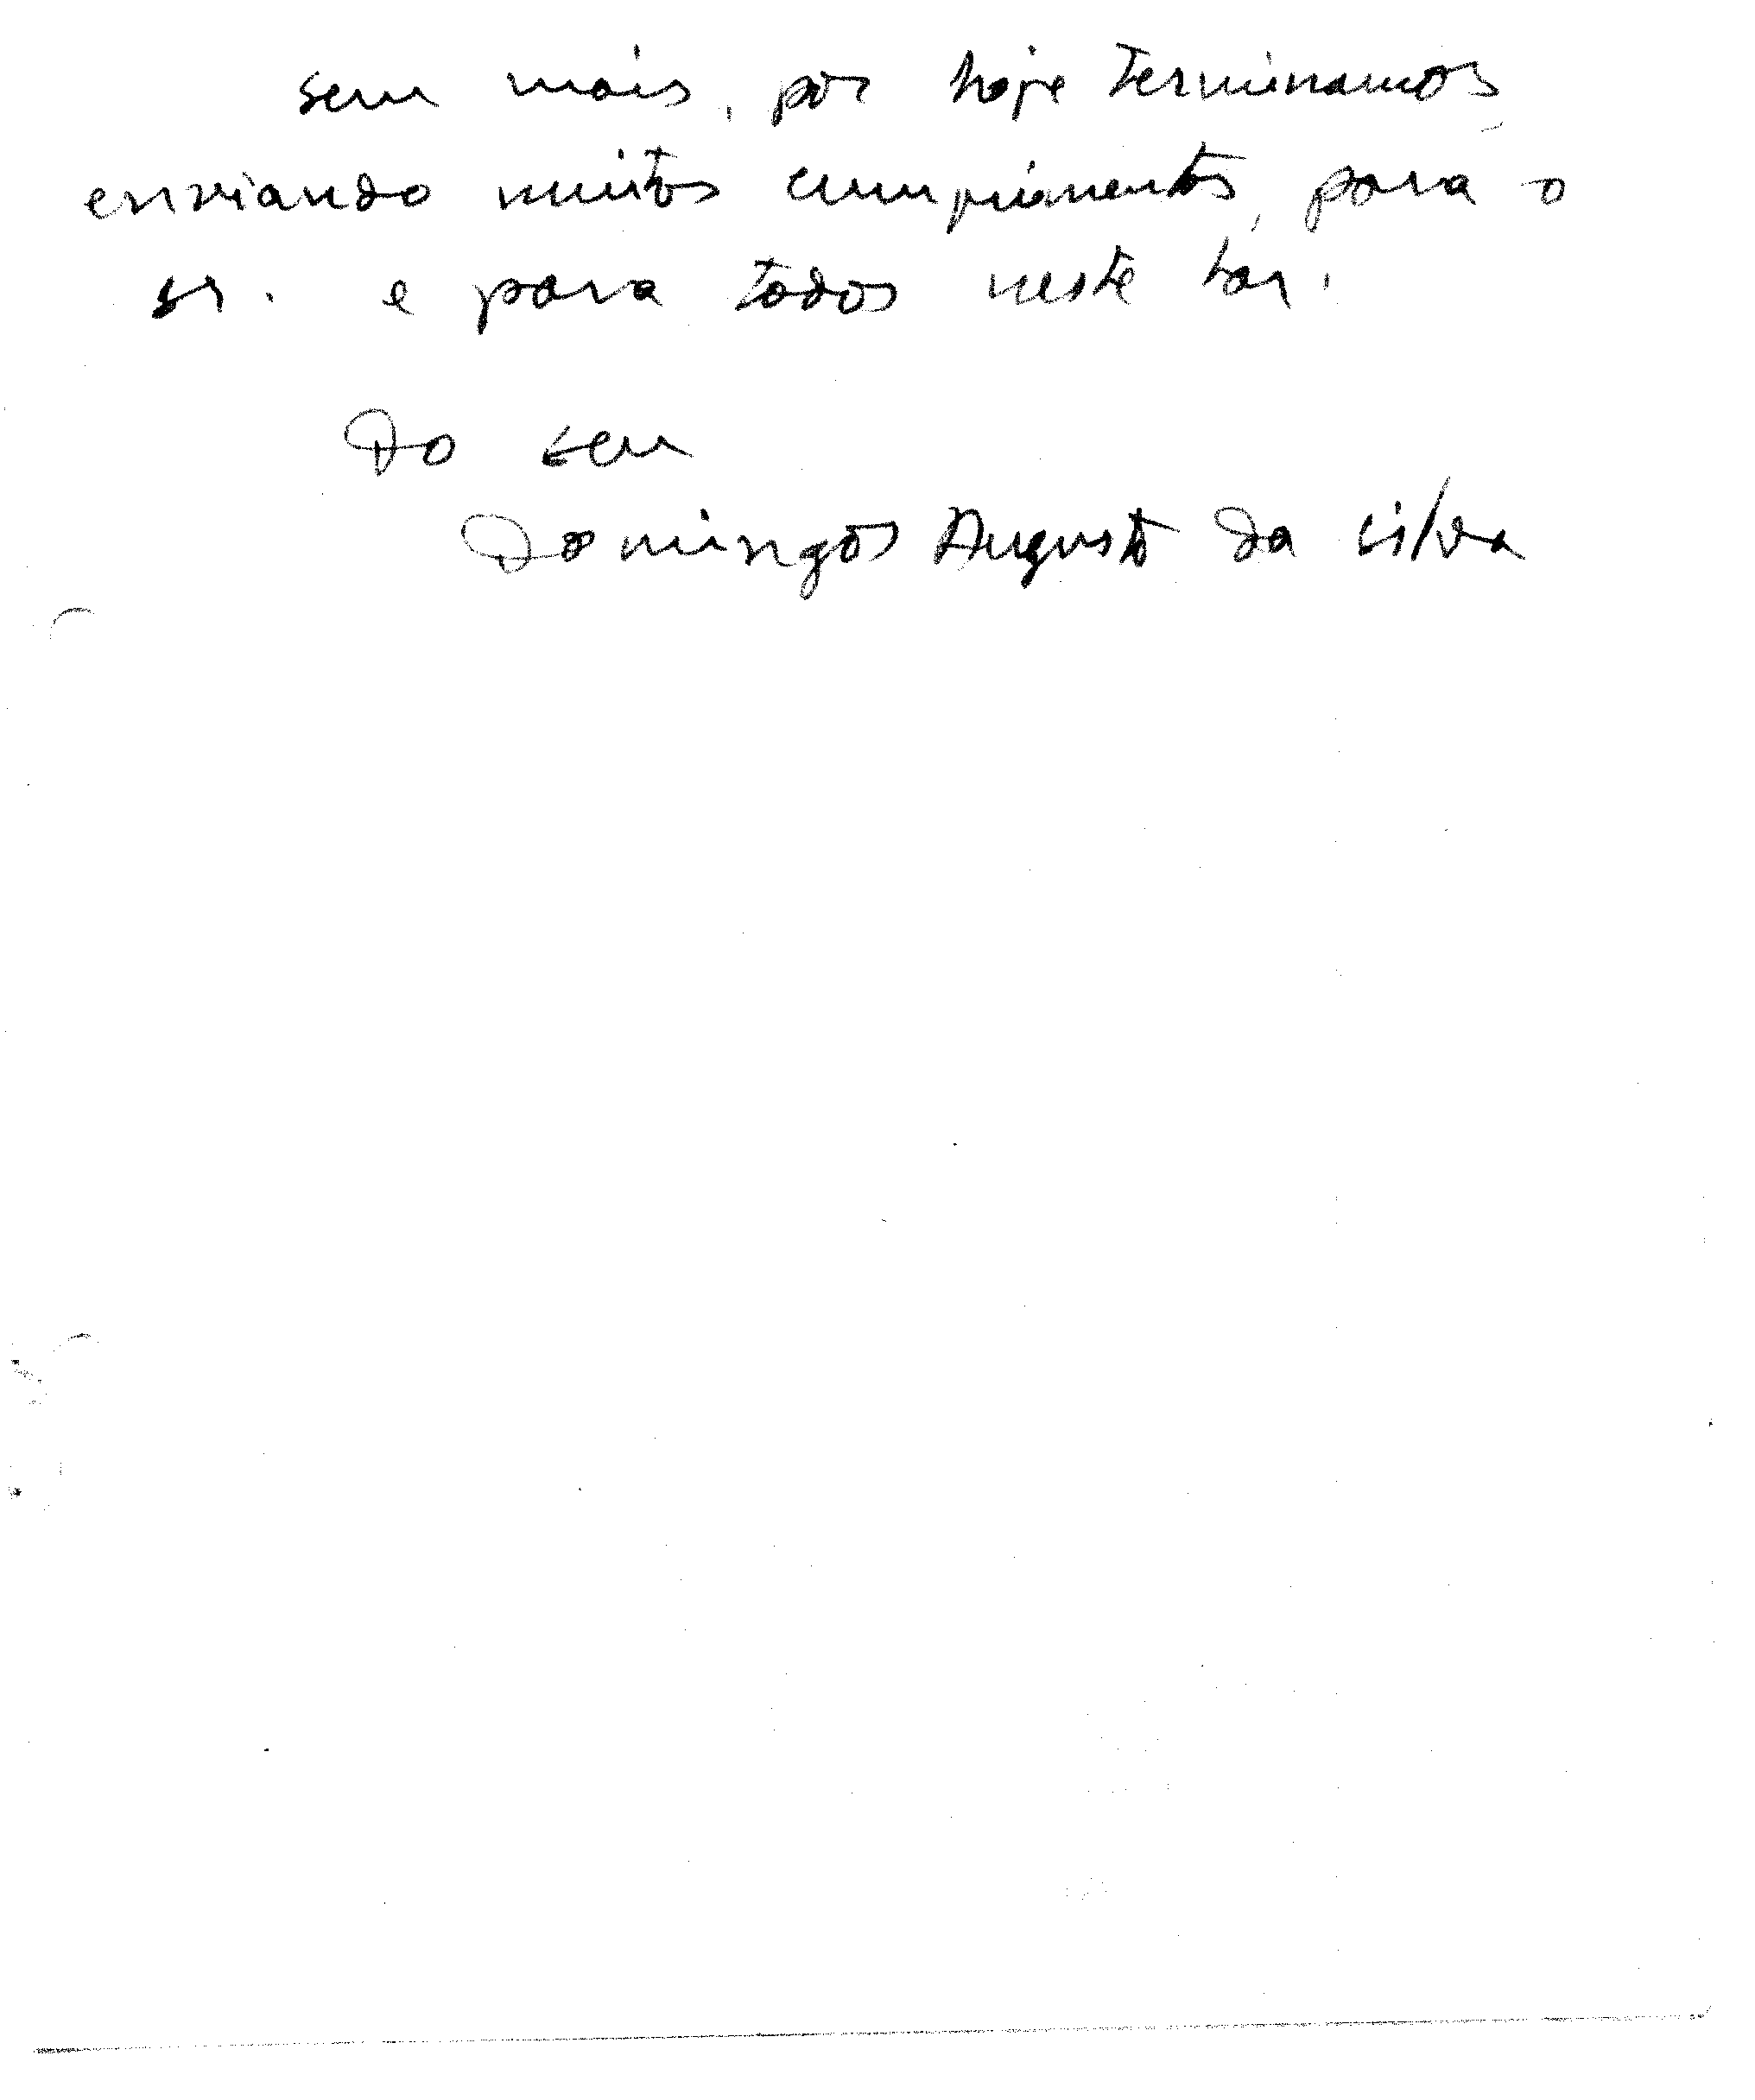 sem mais, por hoje terminamos
enviando muitos cumprimentos, para o
sr. e para todos neste lar.
Do seu
Domingos Augusto da silva